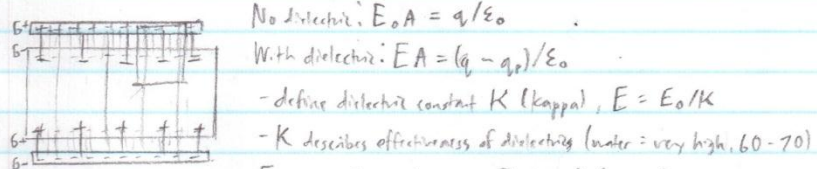 No dielectric: E₀A = q/ε₀
With dielectric: EA = (q - qₚ)/ε₀
- define dielectric constant K (kappa), E = E₀/K
- K describes effectiveness of dielectrics (water = very high, 60-70)
б+
б-
б+
б-